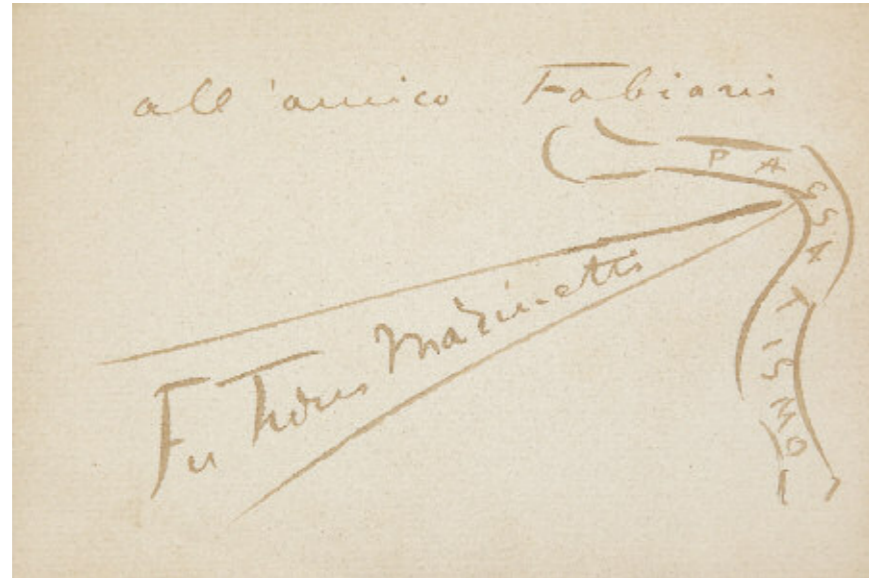 all'amico Fabiani
PASSATISMO
Fu Turus Marinetti